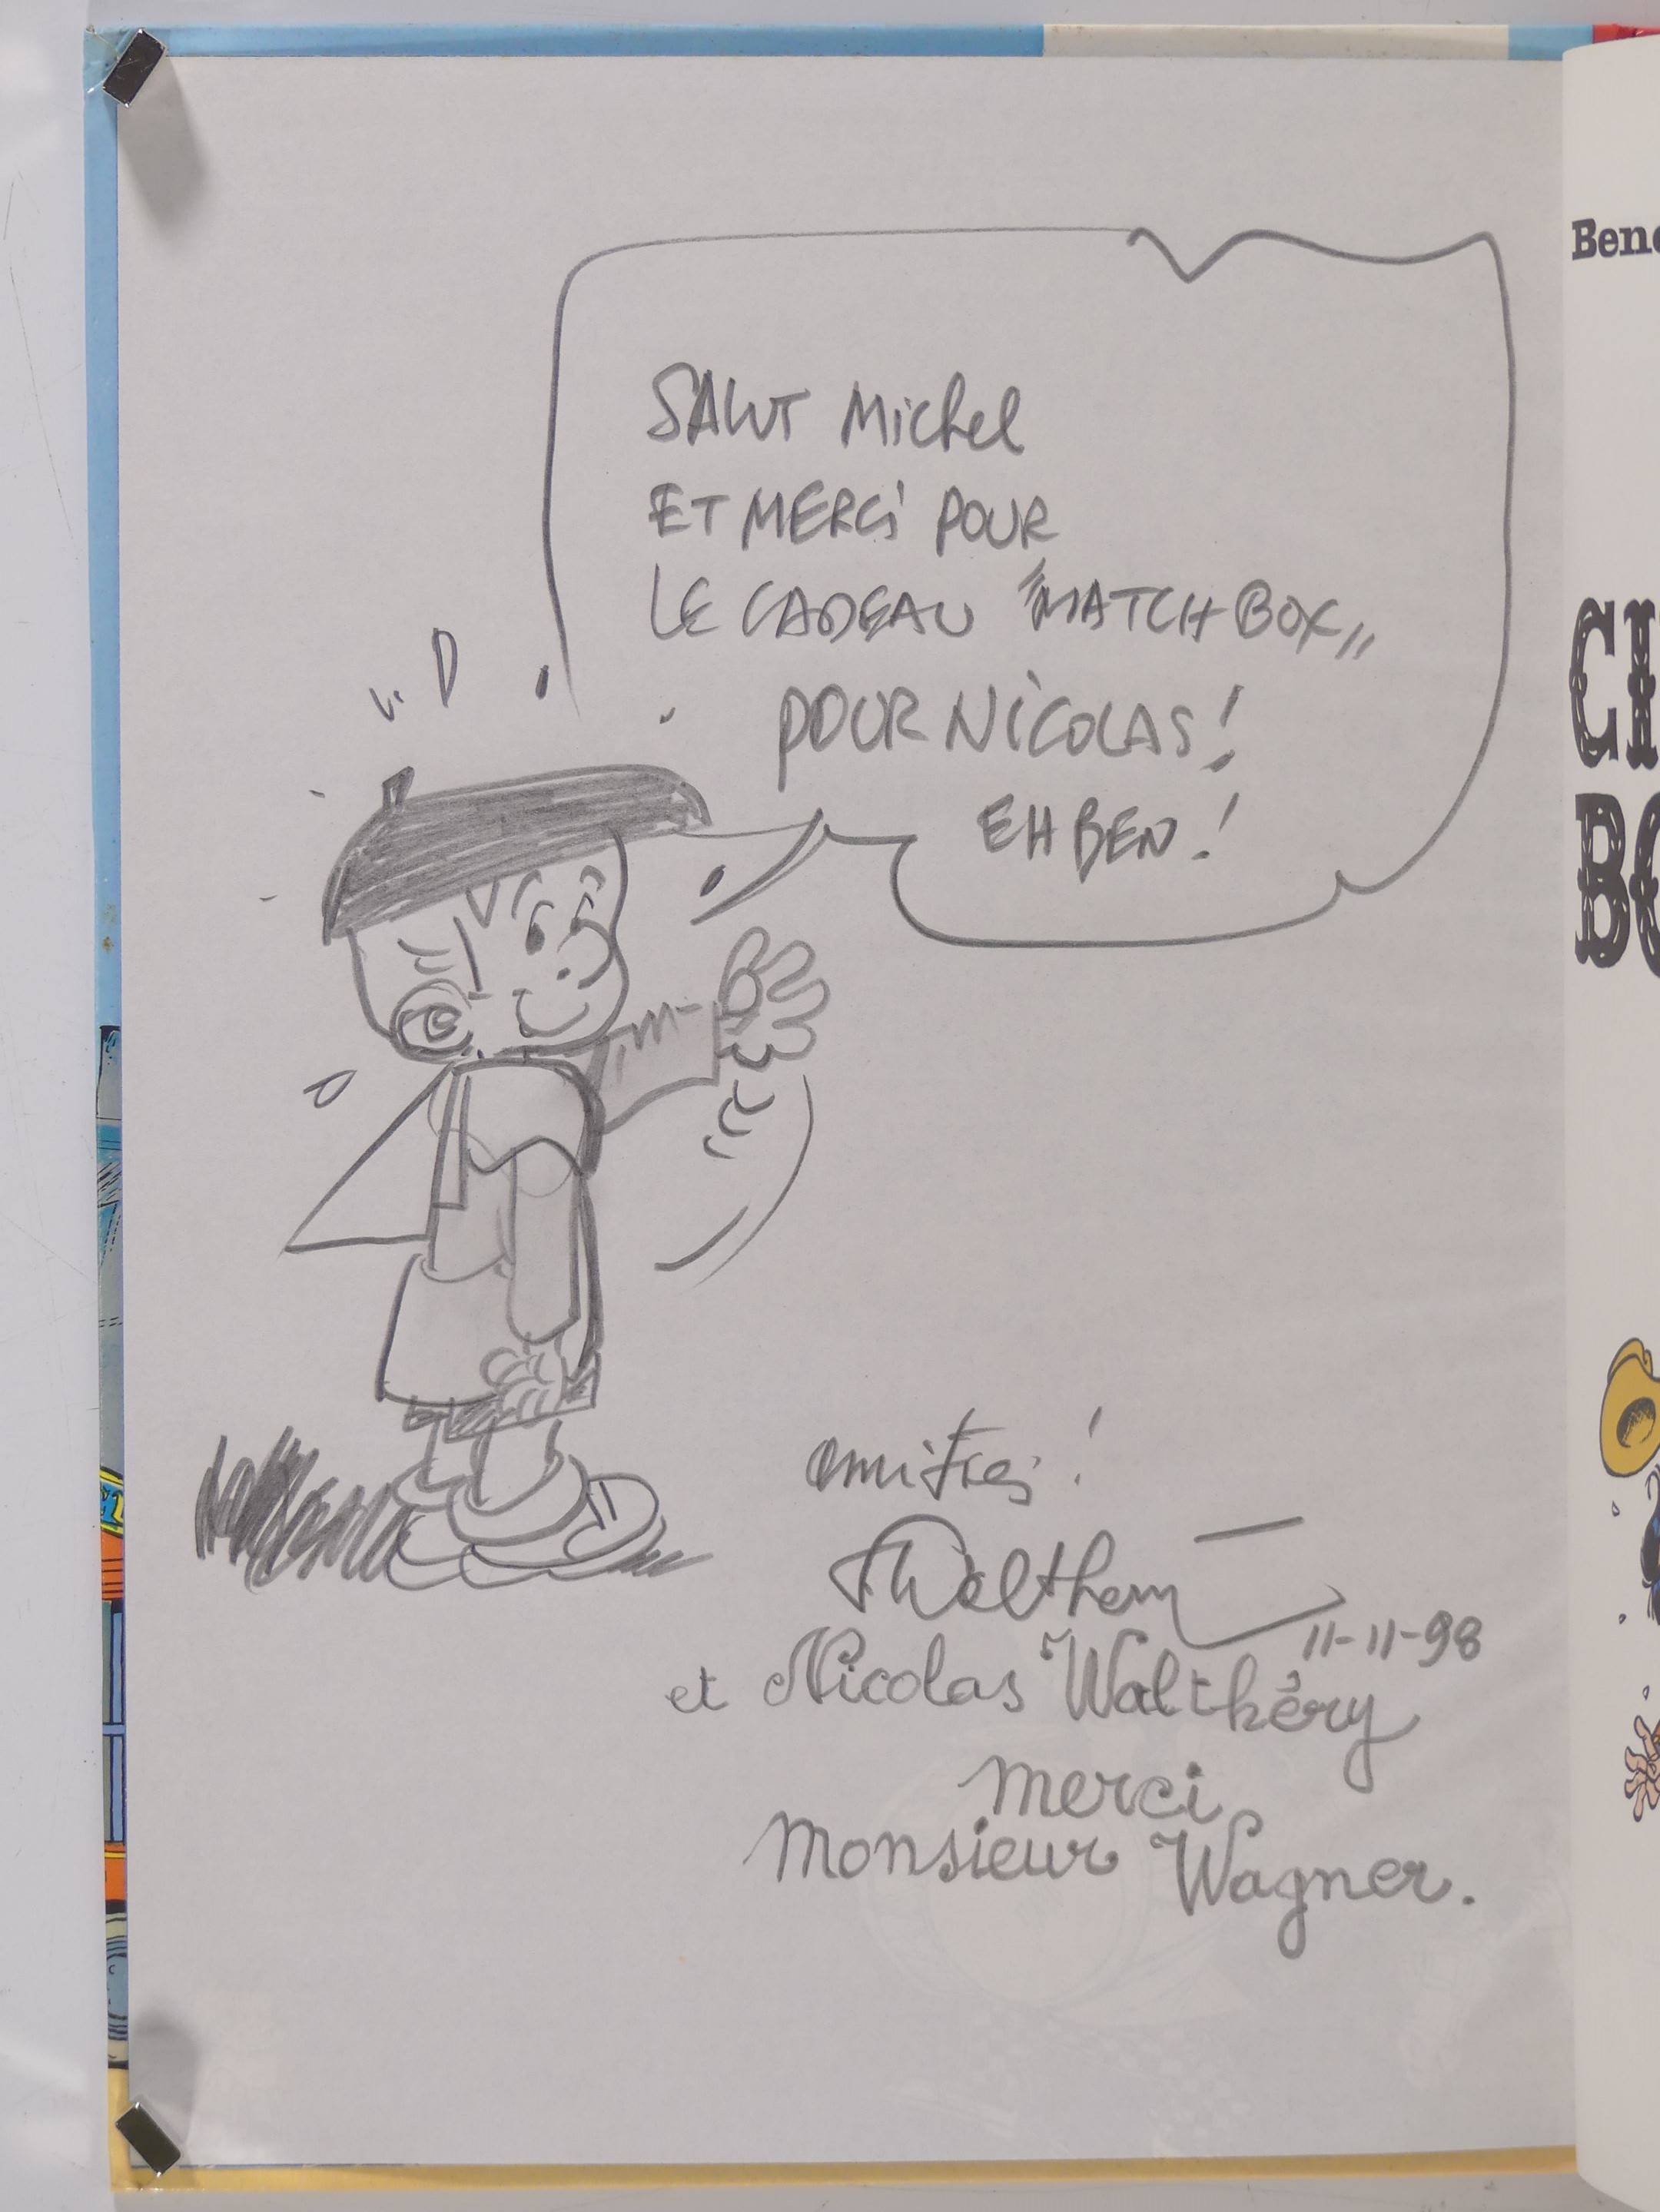 SALUT Michel
ET MERCI POUR
LE CADEAU "MATCHBOX"
POUR NICOLAS!
EH BEN!
amitiés!
Walthery
11-11-98
et Nicolas Walthéry
merci
Monsieur Wagner.
Bene
CI
BO